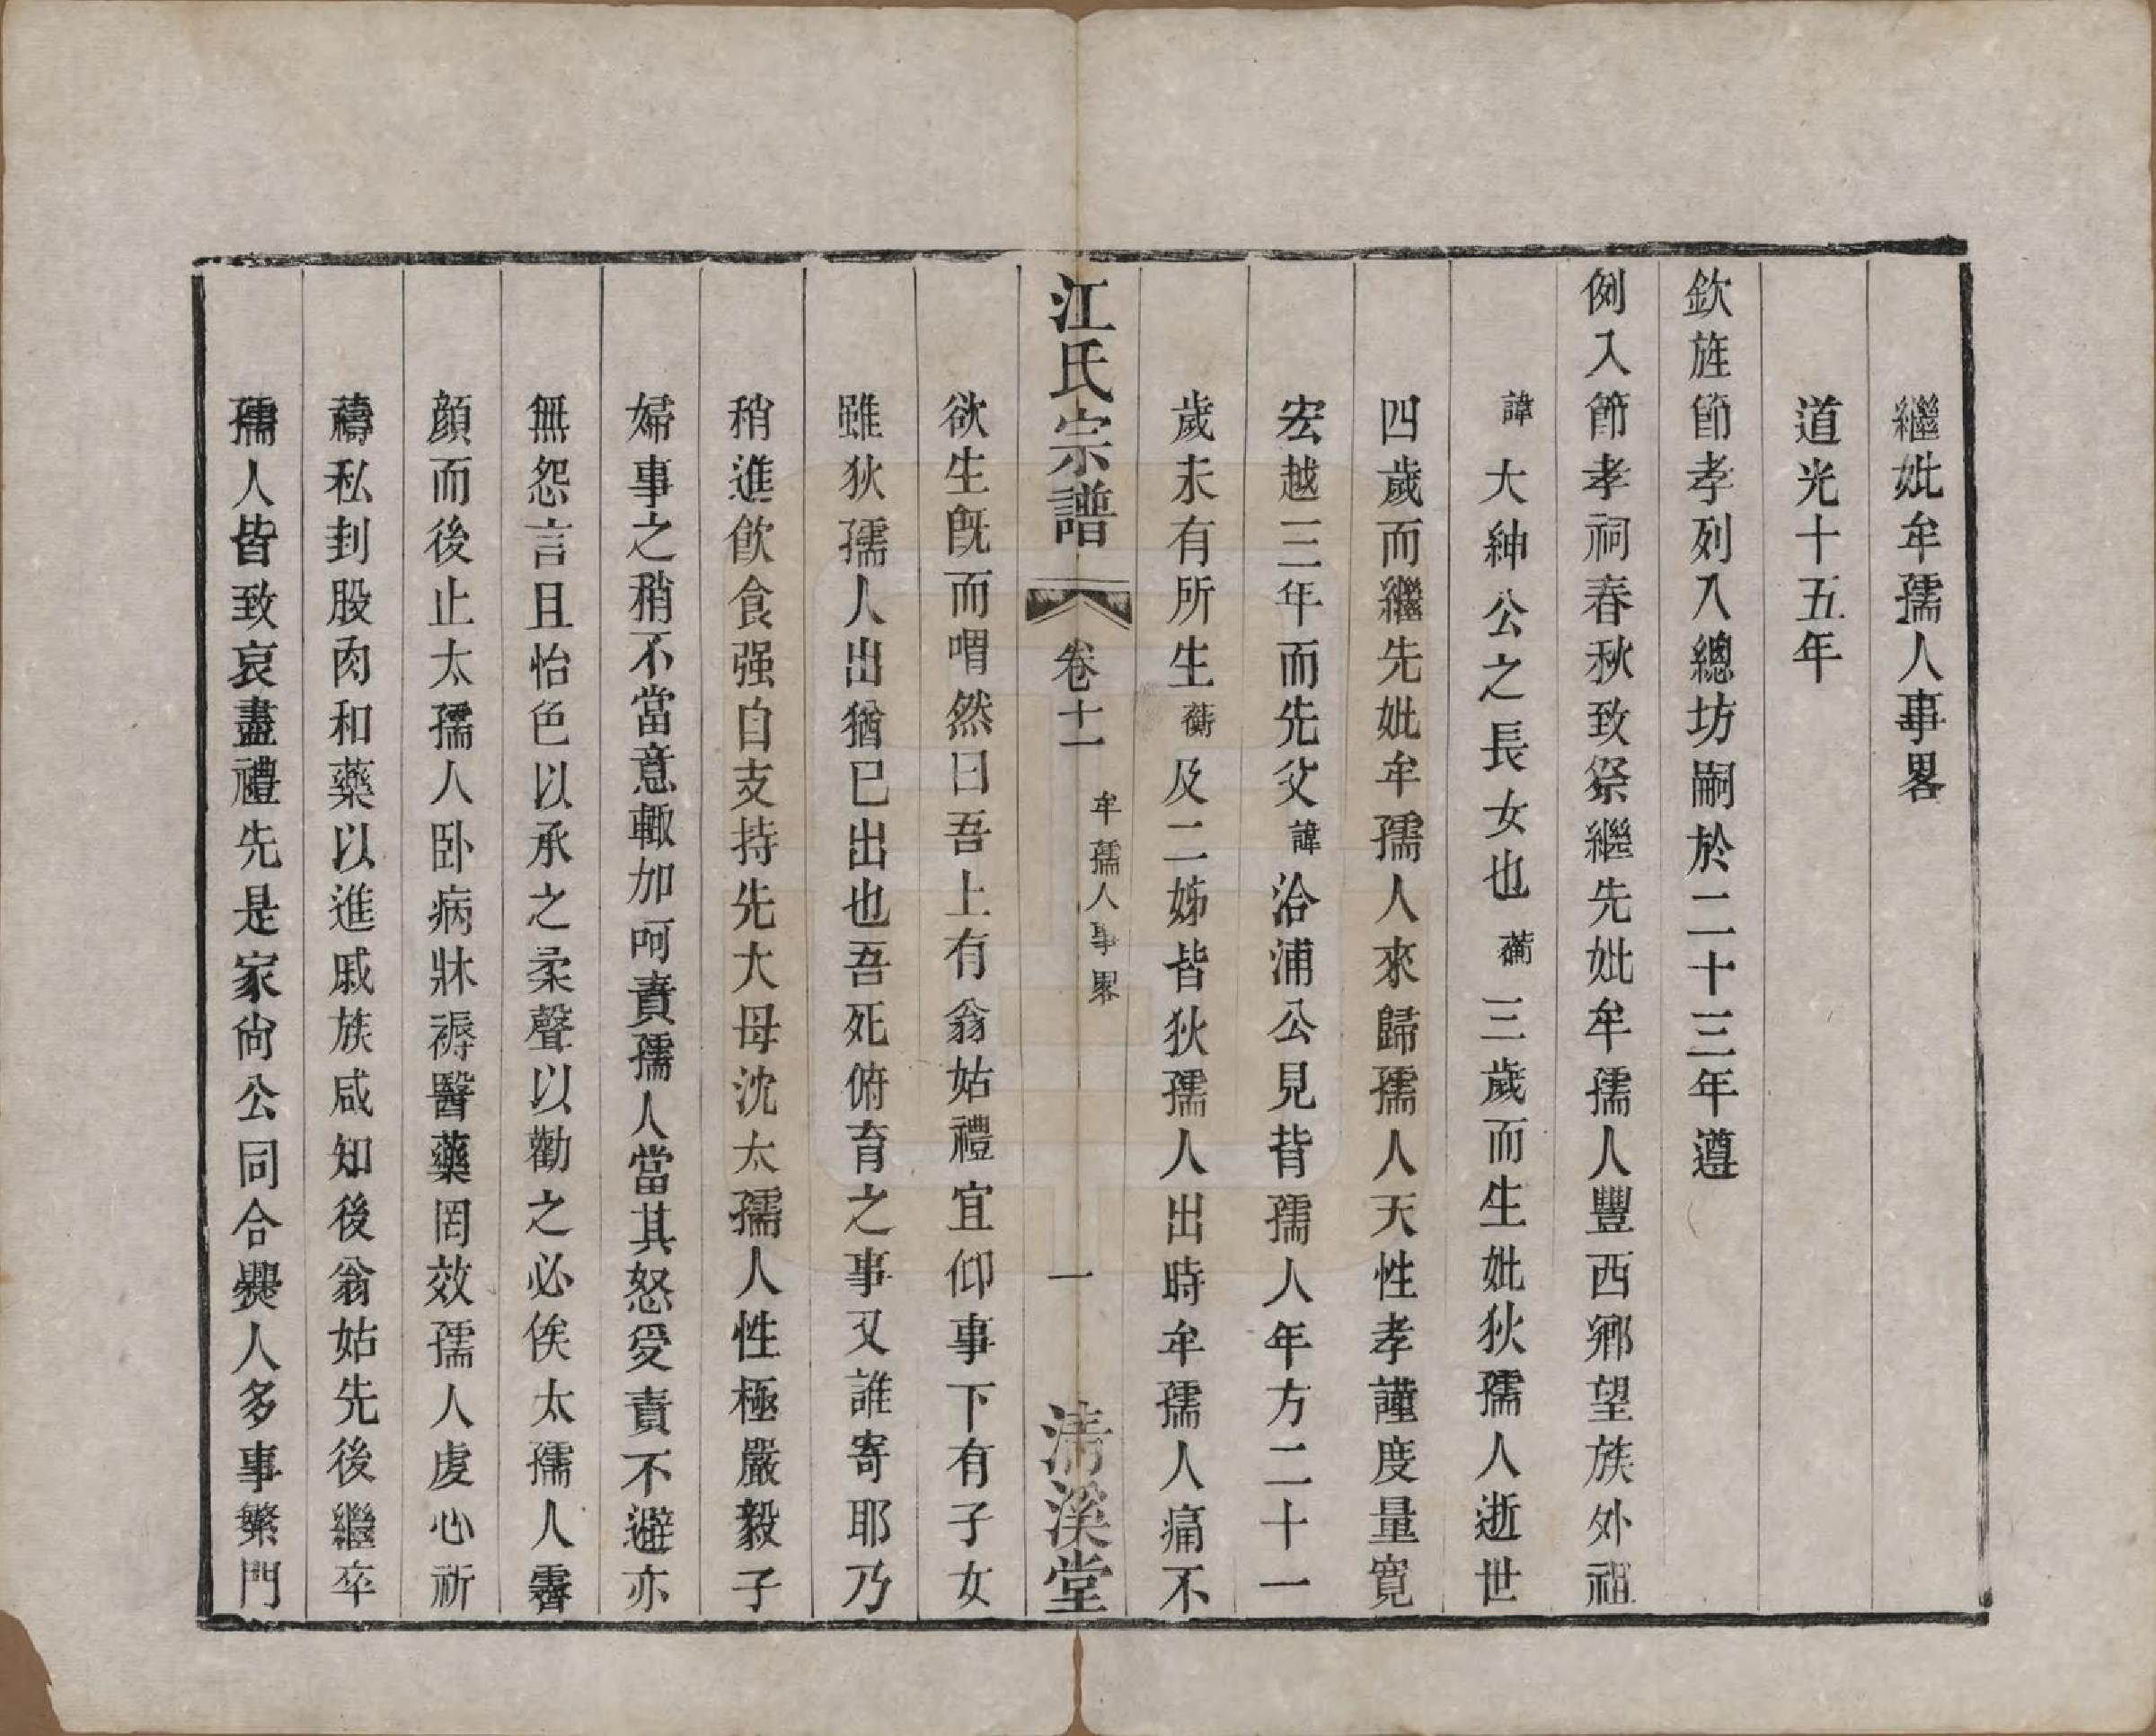 繼妣牟孺人事畧
道光十五年
欽旌節孝列入總坊嗣於二十三年遵
例入節孝祠春秋致祭繼先妣牟孺人豐西鄉望族外祖
諱大紳公之長女也蘅三歲而生妣狄孺人逝世
四歲而繼先妣牟孺人來歸孺人天性孝謹度量寬
宏越三年而先父諱洽浦公見背孺人年方二十一
歲未有所生蘅及二姊皆狄孺人出時牟孺人痛不
江氏宗譜 卷十一 牟孺人事畧 一 淸溪堂
欲生旣而喟然曰吾上有翁姑禮宜仰事下有子女
雖狄孺人出猶已出也吾死俯育之事又誰寄耶乃
稍進飮食强自支持先大母沈太孺人性極嚴毅子
婦事之稍不當意輙加呵責孺人當其怒受責不避亦
無怨言且怡色以承之柔聲以勸之必俟太孺人霽
顔而後止太孺人卧病牀褥醫藥罔效孺人虔心祈
禱私刲股肉和藥以進戚族咸知後翁姑先後繼卒
孺人皆致哀盡禮先是家尙公同合爨人多事繁門